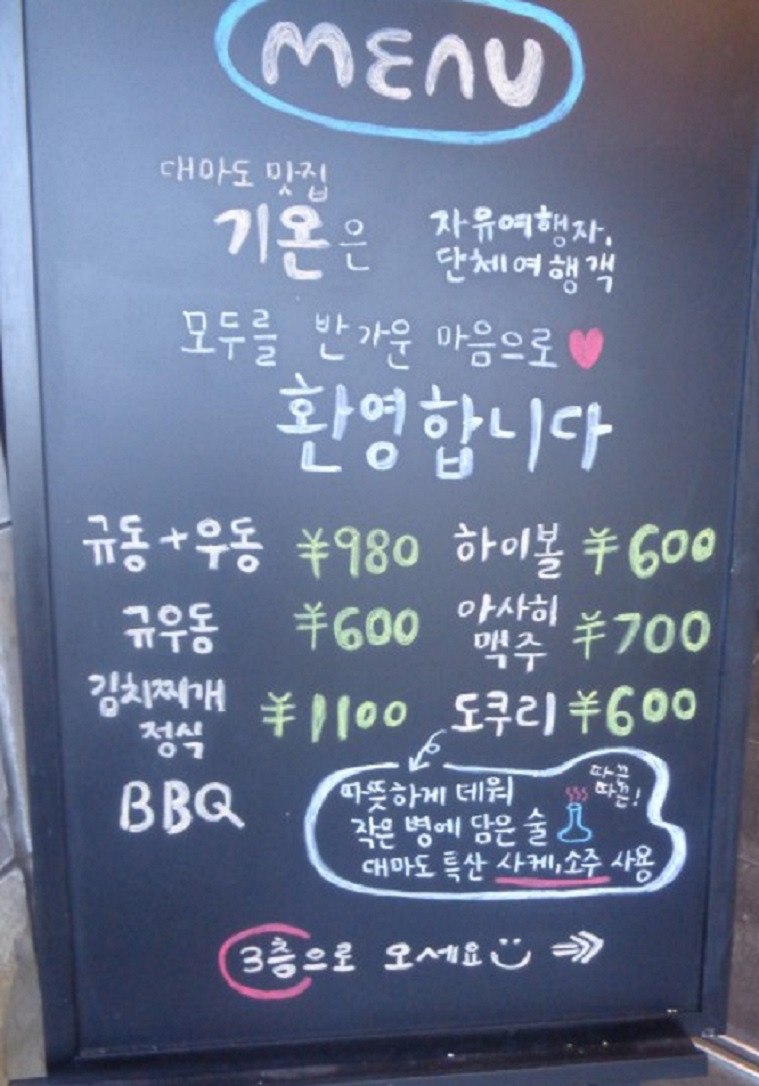 MENU
대마도 맛집
기온은 자유여행자,
단체여행객
모두를 반가운 마음으로
환영합니다
규동+우동 ¥980 하이볼 ¥600
규우동 ¥600 아사히 맥주 ¥700
김치찌개 정식 ¥1100 도쿠리 ¥600
BBQ
따뜻하게 데워 따끈 따끈!
작은 병에 담은 술
대마도 특산 사케,소주 사용
3층으로 오세요